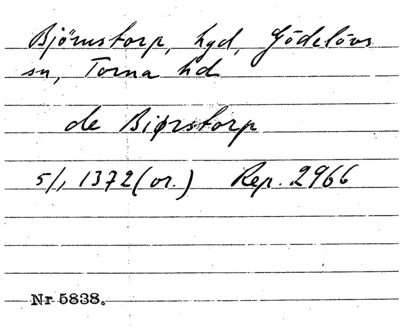 Björnstorp, hgd, Gödelövs
sn, Torna hd
de Biørstorp
5/1, 1372 (or.) Rep. 2966
Nr 5838.